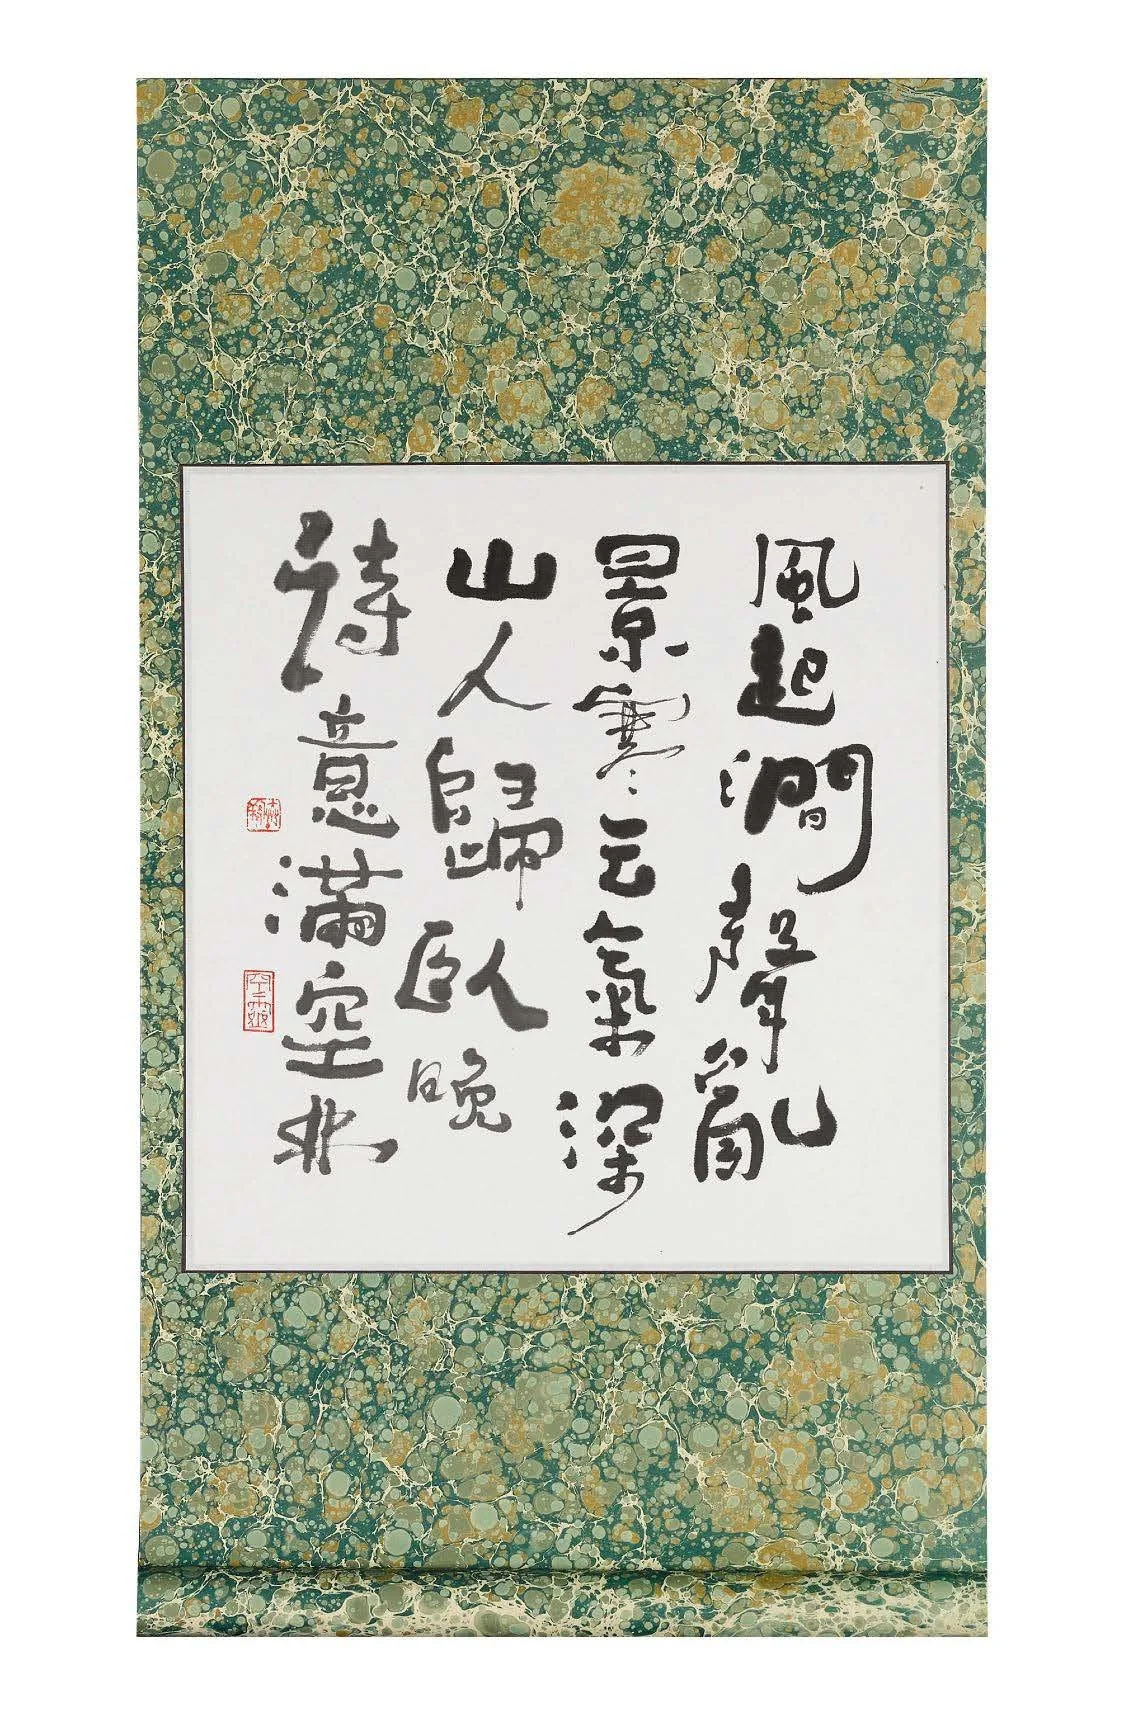 風起澗聲亂
景寒雲氣深
山人歸臥晚
詩意滿空林